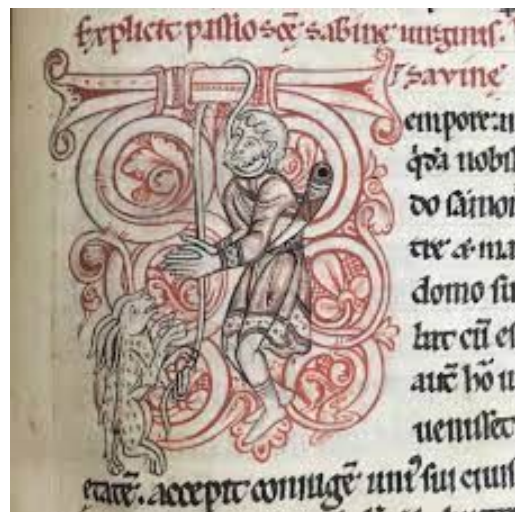 Explicit passio sc̄ę sabine uirginis.
savine
empore: u
q̇da nobil
do samo
tre & ma
domo su
lat cū es
aut̄ hō u
uenisset
etatē. accepit coniugē uni᷒ sui eius